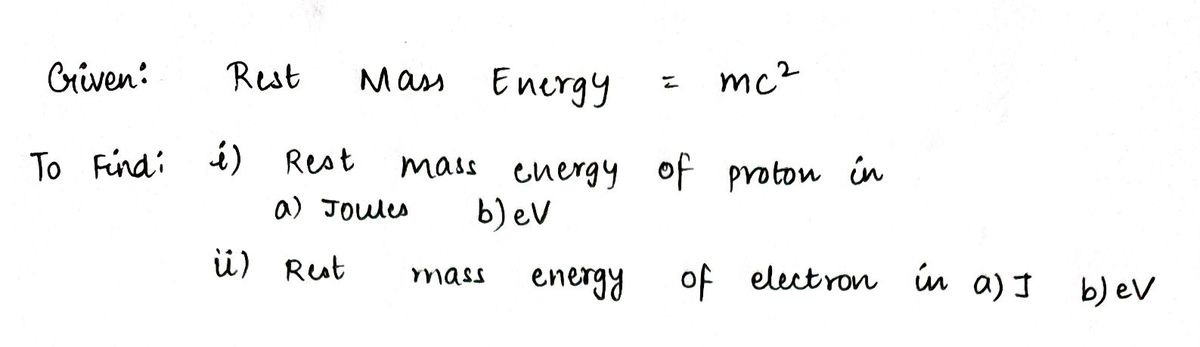 Given: Rest Mass Energy = mc²
To Find: i) Rest mass energy of proton in
a) Joules b) eV
ii) Rest mass energy of electron in a) J b) eV